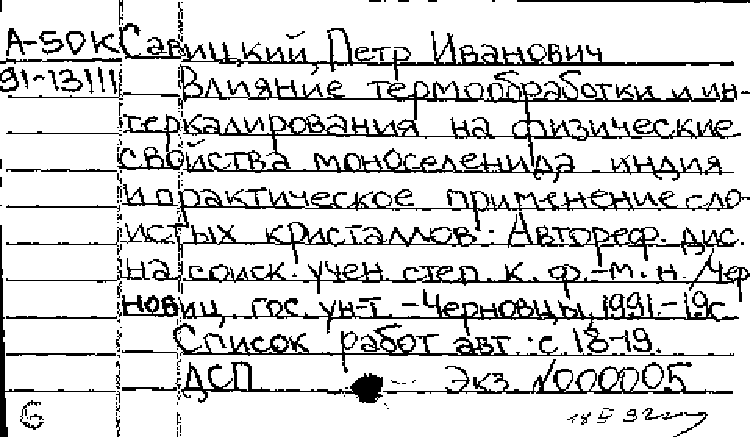 А-50К Савицкий, Петр Иванович
91-13111 Влияние термообработки и ин-
теркалирования на физические
свойства моноселенида индия
и практическое применение сло-
истых кристаллов: Автореф. дис.
на соиск. учен. степ. к. ф.-м. н. / Чер
новиц. гос. ун-т. - Черновцы, 1991. - 19с
Список работ авт.: с. 18-19.
ДСП Экз. N000005
6